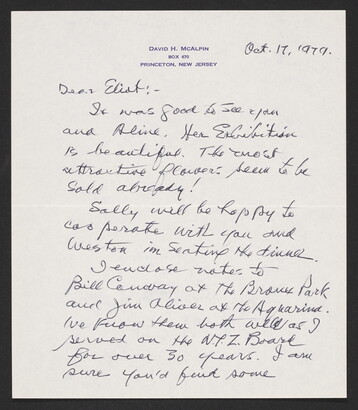 DAVID H. McALPIN
BOX 670
PRINCETON, NEW JERSEY
Oct. 17, 1979.
Dear Eliot:-
It was good to see you
and Aline. Her Exhibition
is beautiful. The most
attractive flowers seem to be
sold already!
Sally will be happy to
cooperate with you and
Weston in Seating the dinner.
I enclose notes to
Bill Conway at the Bronx Park
and Jim Oliver at the Aquarium.
I've know them both well as I
served on the N.Y.Z. Board
for over 30 years. I am
sure you'd find some